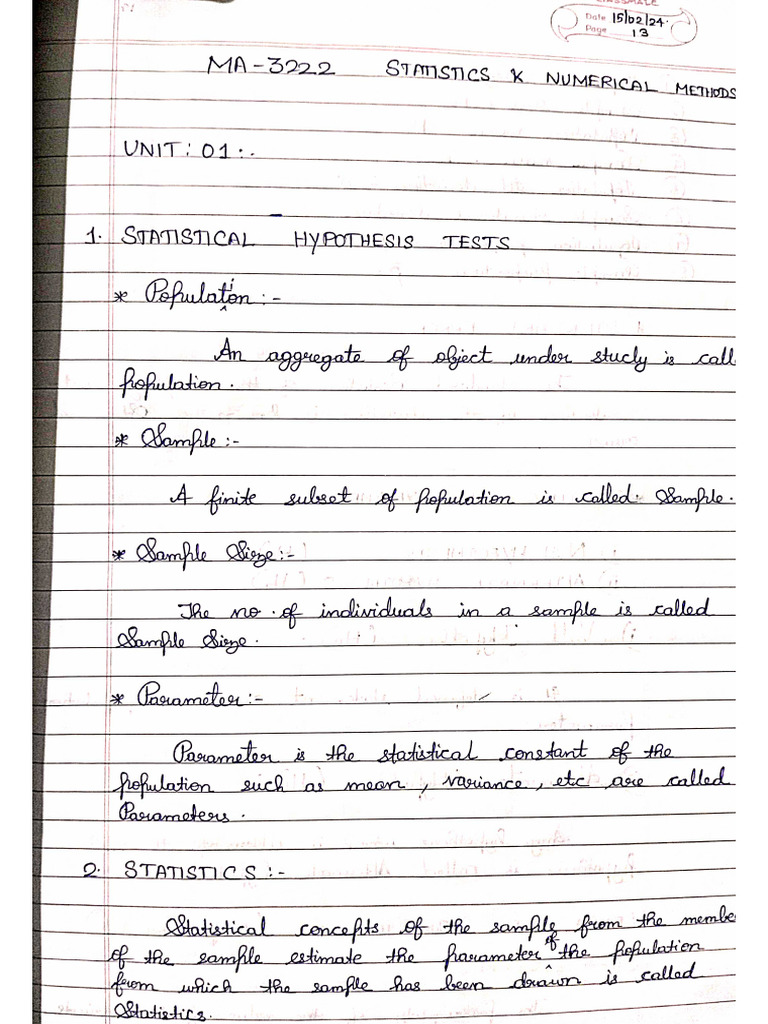 CLASSMATE
Date 15/02/24.
Page 13
MA-3222 STATISTICS & NUMERICAL METHODS
UNIT: 01:.
1. STATISTICAL HYPOTHESIS TESTS
* Population :-
An aggregate of object under study is call
population.
* Sample :-
A finite subset of population is called Sample.
* Sample Sieze :-
The no. of individuals in a sample is called
Sample Sieze.
* Parameter :-
Parameter is the statistical constant of the
population such as mean, variance, etc are called
Parameters.
2. STATISTICS :-
Statistical concepts of the sample from the membe
of the sample estimate the parameter of the population
from which the sample has been drawn is called
Statistics.